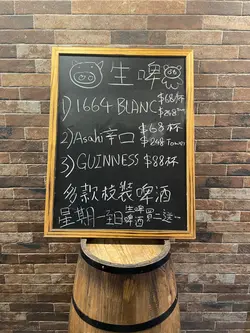 生啤
1) 1664 BLANC $68杯
$258 Tower
2) Asahi 辛口 $68杯
$248 Tower
3) GUINNESS $88杯
多款枝裝啤酒
星期一至日 生啤 啤酒 買二送一